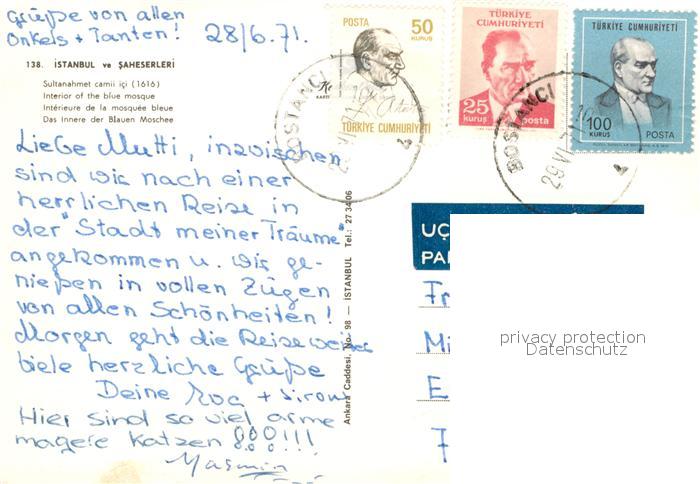 Grüße von allen
Onkels + Tanten! 28/6.71.
138. İSTANBUL ve ŞAHESERLERİ
Sultanahmet camii içi (1616)
Interior of the blue mosque
Intérieure de la mosquée bleue
Das Innere der Blauen Moschee
Liebe Mutti, inzwischen
sind wir nach einer
herrlichen Reise in
der "Stadt meiner Träume"
angekommen u. wir ge-
nießen in vollen Zügen
von allen Schönheiten!
Morgen geht die Reise weiter
viele herzliche Grüße
Deine Eva +
Hier sind so viel arme
magere Katzen !!!
Yasmin
Ankara Caddesi, No. 98 — İSTANBUL Tel.: 27 34 06
POSTA 50
KURUŞ
TÜRKİYE CUMHURİYETİ
TÜRKİYE
CUMHURİYETİ
25
kuruş posta
TÜRKİYE CUMHURİYETİ
100
KURUŞ POSTA
BOSTANCI
BOSTANCI
29 VI
4
UÇ
PA
Fr
Mi
E
7
privacy protection
Datenschutz